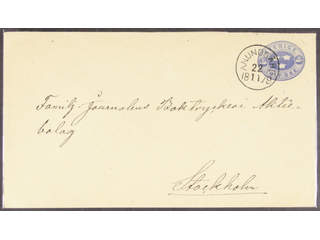 SVERIGE
22
1811/79
Familj-Journalens Boktryckeri Aktie-
bolag
Stockholm